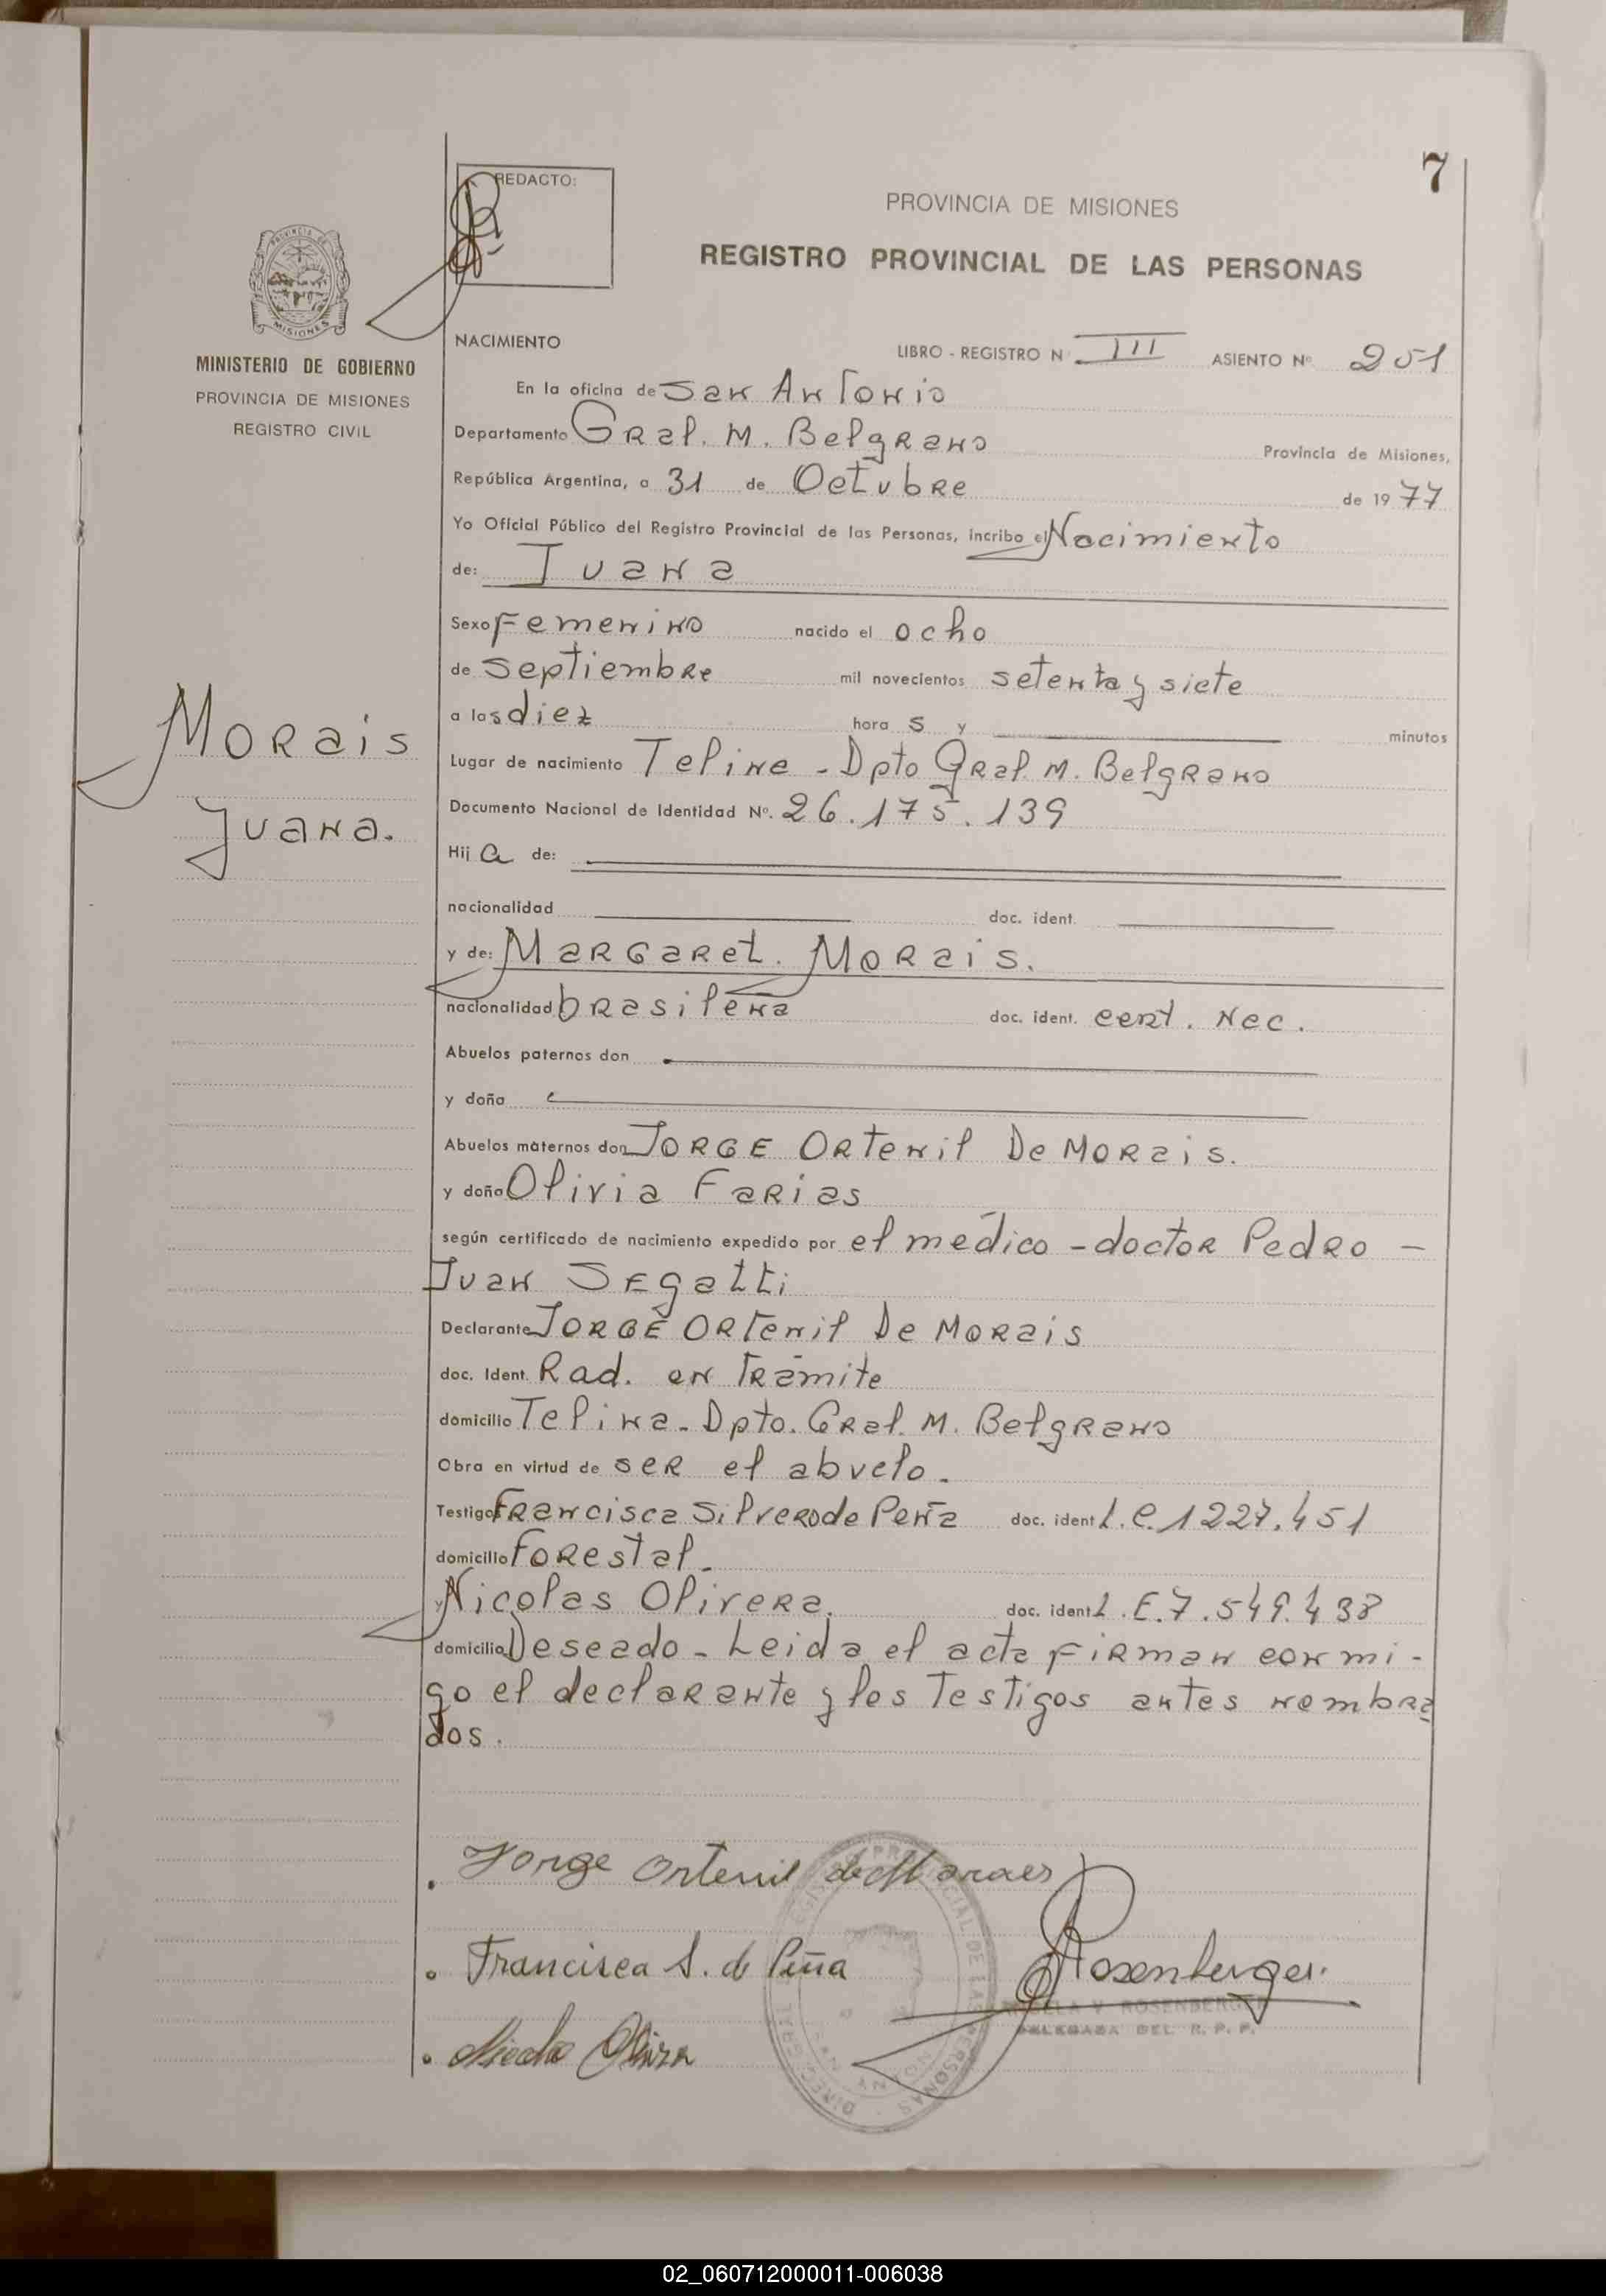 7
REDACTO:
PROVINCIA DE MISIONES
REGISTRO PROVINCIAL DE LAS PERSONAS
MISIONES
MINISTERIO DE GOBIERNO
PROVINCIA DE MISIONES
REGISTRO CIVIL
NACIMIENTO
LIBRO - REGISTRO N III ASIENTO Nº 251
En la oficina de San Antonio
Departamento Gral. M. Belgrano Provincia de Misiones,
República Argentina, a 31 de Octubre de 1977
Yo Oficial Público del Registro Provincial de las Personas, incribo el Nacimiento
de: Juana
Sexo Femenino nacido el ocho
de Septiembre mil novecientos setenta y siete
a las diez hora s y minutos
Morais
Juana.
Lugar de nacimiento Teline - Dpto Gral. M. Belgrano
Documento Nacional de Identidad Nº. 26.175.139
Hij a de:
nacionalidad doc. ident.
y de: Margaret. Morais.
nacionalidad brasileña doc. ident. cert. Nac.
Abuelos paternos don
y doña
Abuelos maternos don Jorge Ortenil De Morais.
y doña Olivia Farias
según certificado de nacimiento expedido por el médico - doctor Pedro -
Juan Segatti
Declarante Jorge Ortenil De Morais
doc. Ident. Rad. en Trámite
domicilio Telina - Dpto. Gral. M. Belgrano
Obra en virtud de ser el abuelo.
Testigos Francisca Silvero de Peña doc. ident L.C. 1227.451
domicilio Forestal.
y Nicolas Olivera. doc. ident L.E. 7.549.438
domicilio Deseado - Leida el acta firman conmi-
go el declarante y los Testigos antes nombra
dos.
Jorge Ortenil de Moraes
Francisca S. de Peña
Rosenberger.
V. ROSENBERGER
DELEGADA DEL R. P. P.
02_060712000011-006038